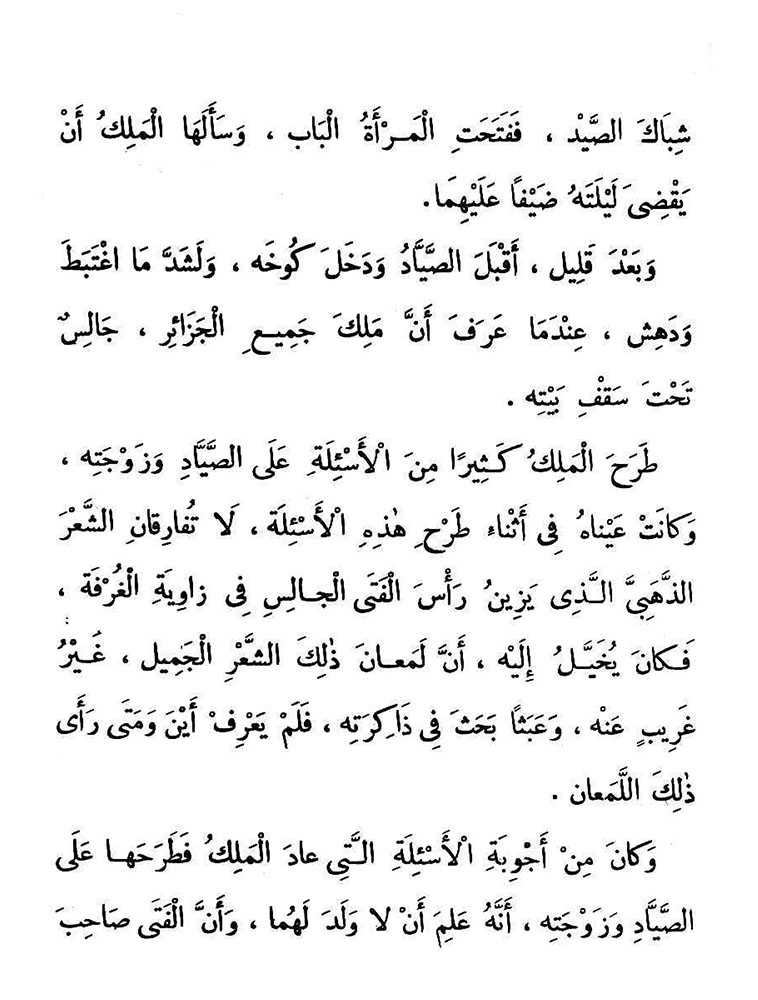 شِبَاكَ الصَّيْد ، فَفَتَحَتِ الْمَـرْأَةُ الْبَاب ، وَسَأَلَهَا الْمَلِكُ أَنْ
يَقْضِىَ لَيْلَتَهُ ضَيْفاً عَلَيْهِمَا.
وَبَعْدَ قَلِيل ، أَقْبَلَ الصَّيَّادُ وَدَخَلَ كُوخَه ، وَلَشَدَّ مَا اغْتَبَطَ
وَدَهِش ، عِنْدَمَا عَرَفَ أَنَّ مَلِكَ جَمِيـعِ الْجَزَائِر ، جَالِسٌ
تَحْتَ سَقْفِ بَيْتِه .
طَرَحَ الْمَلِكُ كَـثِيرًا مِنَ الْأَسْئِلَةِ عَلَى الصَّيَّادِ وَزَوْجَتِه ،
وَكانَتْ عَيْناهُ فِى أَثْناءِ طَرْحِ هٰذِهِ الْأَسْئِلَة ، لَا تُفارِقانِ الشَّعْرَ
الذَّهَبِىَّ الَّـذِى يَزِينُ رَأْسَ الْفَتَى الْجـالِسِ فِى زاوِيَةِ الْغُرْفَة ،
فَـكانَ يُخَيَّـلُ إِلَيْه ، أَنَّ لَمَعـانَ ذٰلِكَ الشَّعْرِ الْجَمِيل ، غَـيْرُ
غَرِيبٍ عَنْه ، وَعَبَثًا بَحَثَ فِى ذَاكِرَتِه ، فَلَمْ يَعْرِفْ أَيْنَ وَمَتَى رَأَى
ذٰلِكَ اللَّمَعان .
وَكانَ مِنْ أَجْوِبَةِ الْأَسْئِلَةِ الـَّتِى عادَ الْمَلِكُ فَطَرَحَهـا عَلَى
الصَّيَّادِ وَزَوْجَتِه ، أَنَّهُ عَلِمَ أَنْ لا وَلَدَ لَهُما ، وَأَنَّ الْفَتَى صَاحِبَ